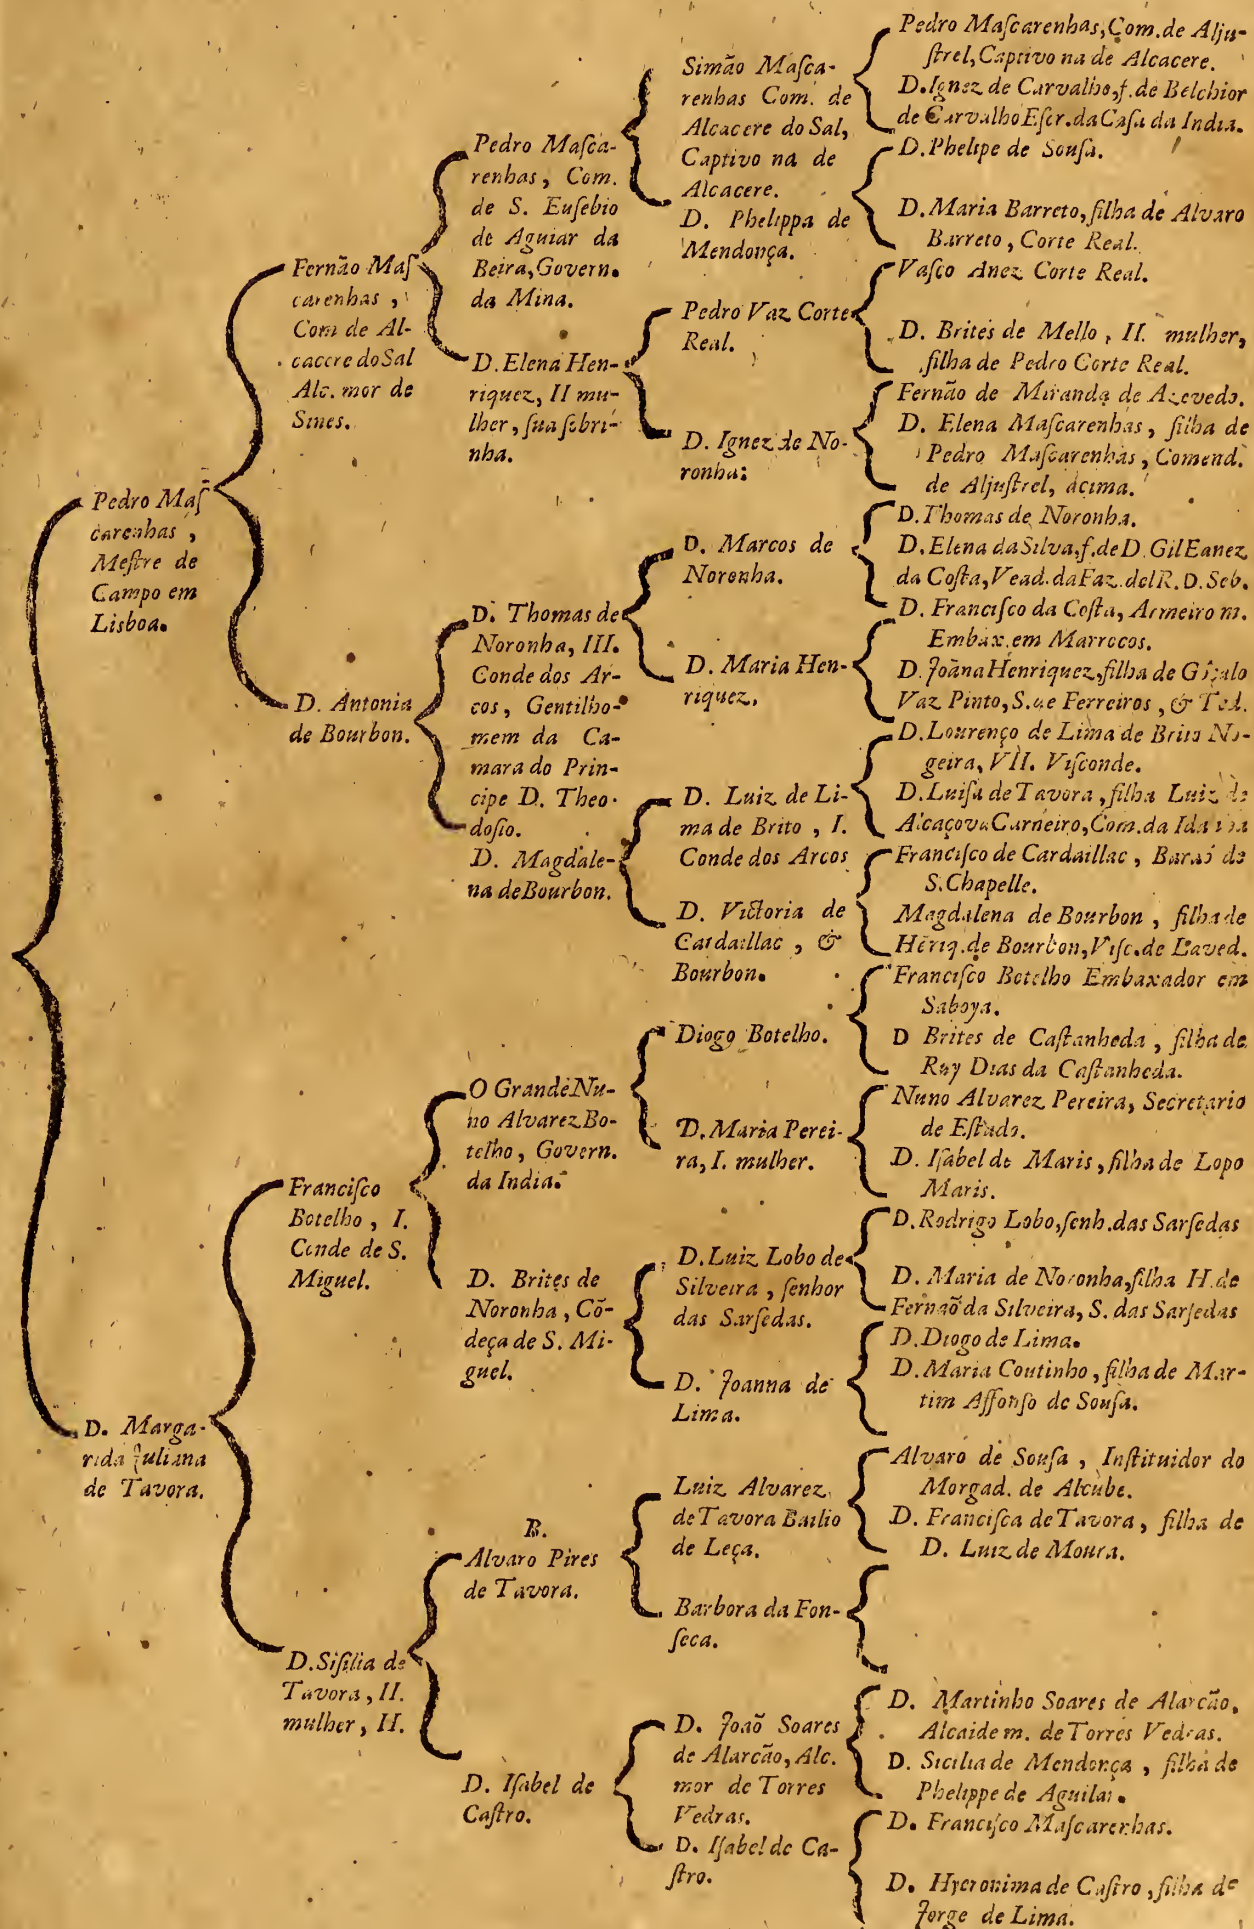 Pedro Maſ
carenhas ,
Meſtre de
Campo em
Lisboa.
D. Marga-
rida Juliana
de Tavora.
Fernão Maſ
carenhas ,
Com de Al-
cacere do Sal
Alc. mor de
Sines.
D. Antonia
de Bourbon.
Franciſco
Botelho , I.
Conde de S.
Miguel.
D. Siſilia de
Tavora , II.
mulher , H.
Pedro Maſca-
renhas , Com.
de S. Euſebio
de Aguiar da
Beira, Govern.
da Mina.
D. Elena Hen-
riquez, II mu-
lher , ſua ſobri-
nha.
D. Thomas de
Noronha, III.
Conde dos Ar-
cos , Gentilho-
mem da Ca-
mara do Prin-
cipe D. Theo-
doſio.
D. Magdale-
na de Bourbon.
O Grande Nu-
no Alvarez Bo-
telho , Govern.
da India.
D. Brites de
Noronha , Cõ-
deça de S. Mi-
guel.
B.
Alvaro Pires
de Tavora.
D. Iſabel de
Caſtro.
Simão Maſca-
renhas Com. de
Alcacere do Sal,
Captivo na de
Alcacere.
D. Phelippa de
Mendonça.
Pedro Vaz Corte
Real.
D. Ignez de No-
ronha:
D. Marcos de
Noronha.
D. Maria Hen-
riquez.
D. Luiz de Li-
ma de Brito , I.
Conde dos Arcos
D. Victoria de
Cardaillac , &
Bourbon.
Diogo Botelho.
D. Maria Perei-
ra, I. mulher.
D. Luiz Lobo de
Silveira , ſenhor
das Sarſedas.
D. Joanna de
Lima.
Luiz Alvarez
de Tavora Bailio
de Leça.
Barbora da Fon-
ſeca.
D. Joaõ Soares
de Alarcão, Alc.
mor de Torres
Vedras.
D. Iſabel de Ca-
ſtro.
Pedro Maſcarenhas, Com. de Alju-
ſtrel, Captivo na de Alcacere.
D. Ignez de Carvalho, f. de Belchior
de Carvalho Eſcr. da Caſa da India.
D. Phelipe de Souſa.
D. Maria Barreto, filha de Alvaro
Barreto , Corte Real.
Vaſco Anez Corte Real.
D. Brites de Mello , II. mulher,
filha de Pedro Corte Real.
Fernão de Miranda de Azevedo.
D. Elena Maſcarenhas , filha de
Pedro Maſcarenhas , Comend.
de Aljuſtrel, acima.
D. Thomas de Noronha.
D. Elena da Silva, f. de D. Gil Eanez
da Coſta, Vead. da Faz. del R. D. Seb.
D. Franciſco da Coſta, Armeiro m.
Embax. em Marrocos.
D. Joana Henriquez, filha de
Vaz Pinto, S. de Ferreiros , & Ted.
D. Lourenço de Lima de Brito No-
geira, VII. Viſconde.
D. Luiſa de Tavora , filha Luiz de
Alcaçova Carneiro, Com. da
Franciſco de Cardaillac , Baraõ de
S. Chapelle.
Magdalena de Bourbon , filha de
Hẽriq. de Bourbon, Viſc. de Laved.
Franciſco Botelho Embaxador em
Saboya.
D Brites de Caſtanheda , filha de
Ruy Dias da Caſtanheda.
Nuno Alvarez Pereira, Secretario
de Eſtado.
D. Iſabel de Maris , filha de Lopo
Maris.
D. Rodrigo Lobo, ſenh. das Sarſedas
D. Maria de Noronha, filha H. de
Fernaõ da Silveira, S. das Sarſedas
D. Diogo de Lima.
D. Maria Coutinho , filha de Mar-
tim Affonſo de Souſa.
Alvaro de Souſa , Inſtituidor do
Morgad. de Alcube.
D. Franciſca de Tavora , filha de
D. Luiz de Moura.
D. Martinho Soares de Alarcão,
Alcaide m. de Torres Vedras.
D. Sicilia de Mendonça , filha de
Phelippe de Aguilar.
D. Franciſco Maſcarenhas.
D. Hyeronima de Caſtro , filha de
Jorge de Lima.